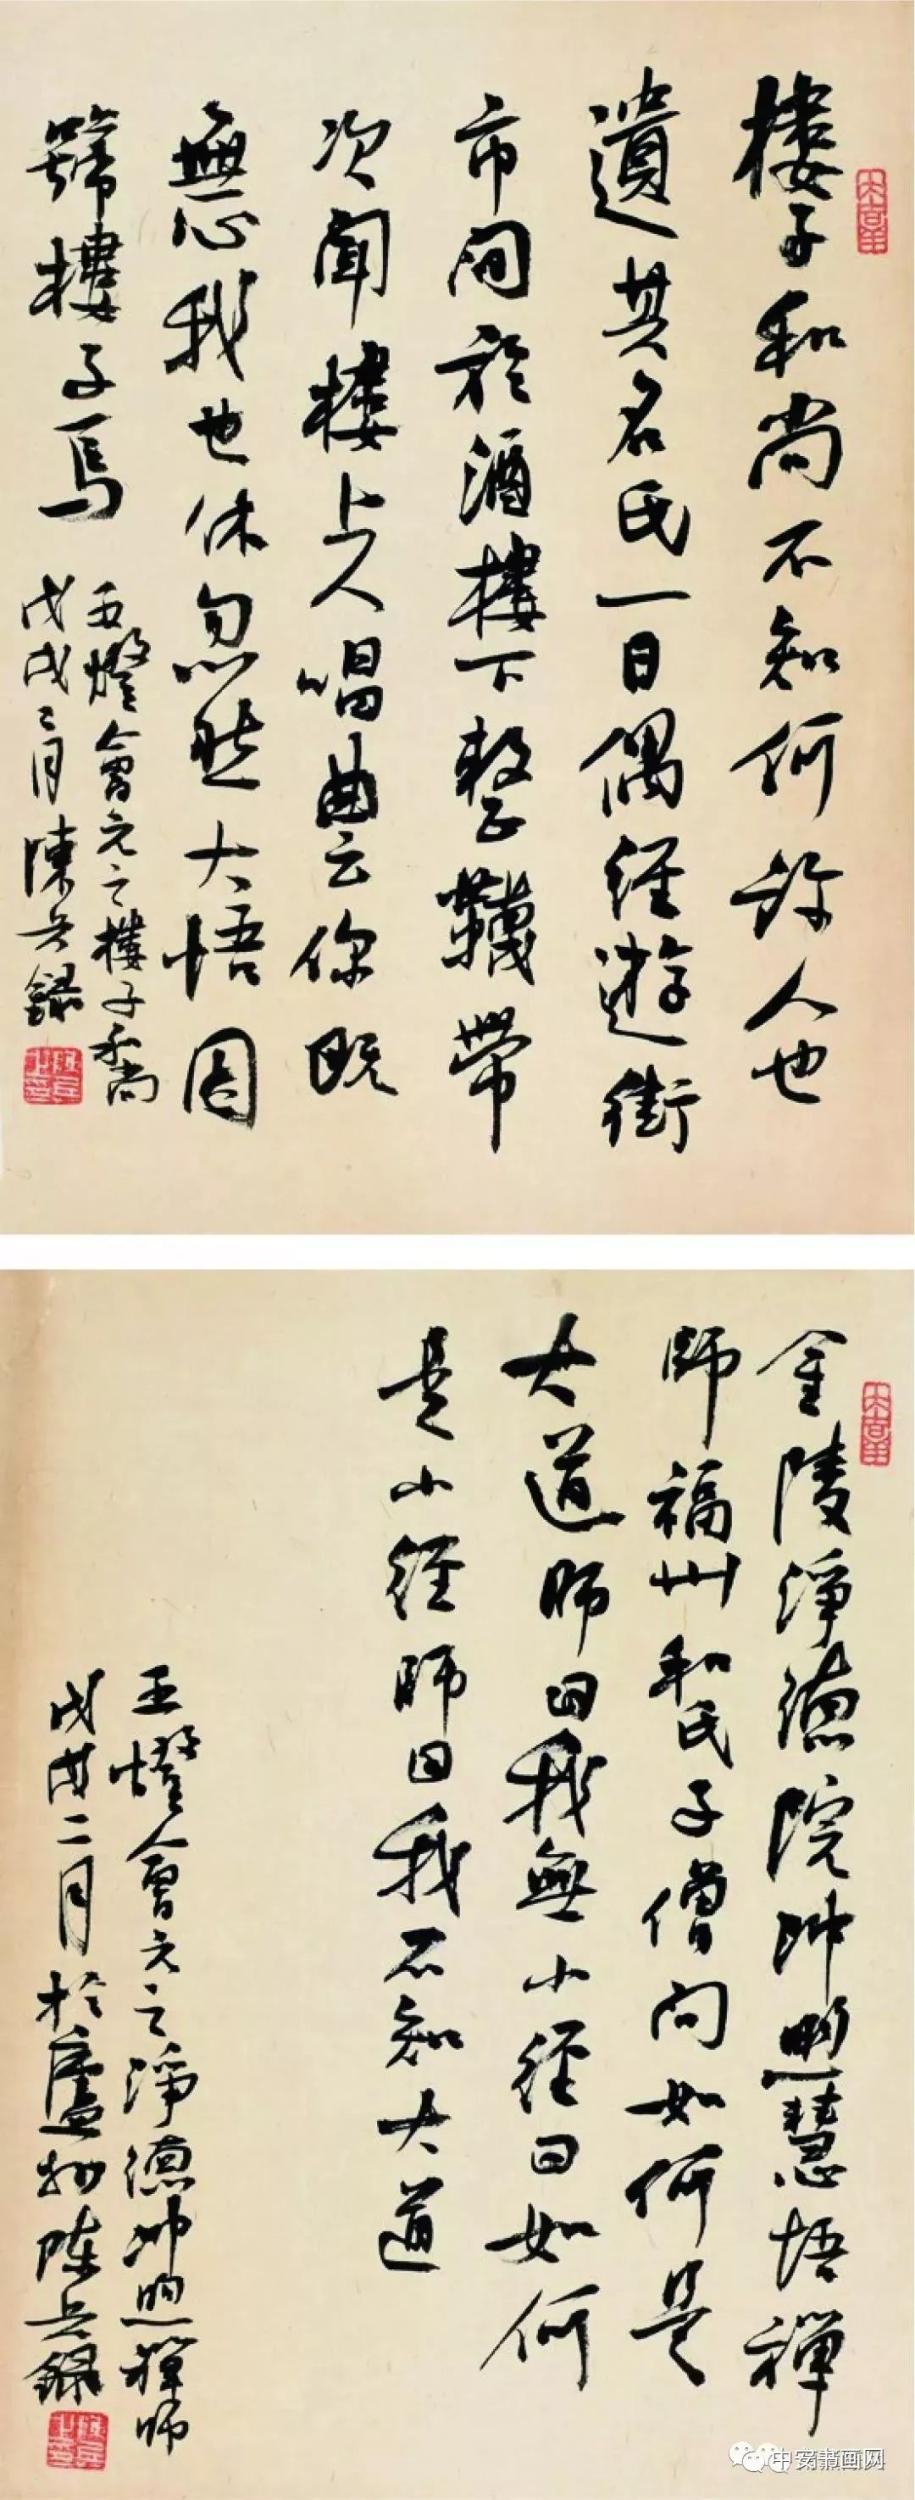 樓子和尚不知何許人也
遺其名氏一日偶經遊街
市間於酒樓下整韈帶
次聞樓上人唱曲云你既
無心我也休忽然大悟因
號樓子焉
五燈會元之樓子和尚
戊戌二月陳兵錄
金陵淨德院沖煦慧悟禪
師福州和氏子僧問如何是
大道師曰我無小徑曰如何
是小徑師曰我不知大道
五燈會元之淨德沖煦禪師
戊戌二月於廬州陳兵錄
中安书画网